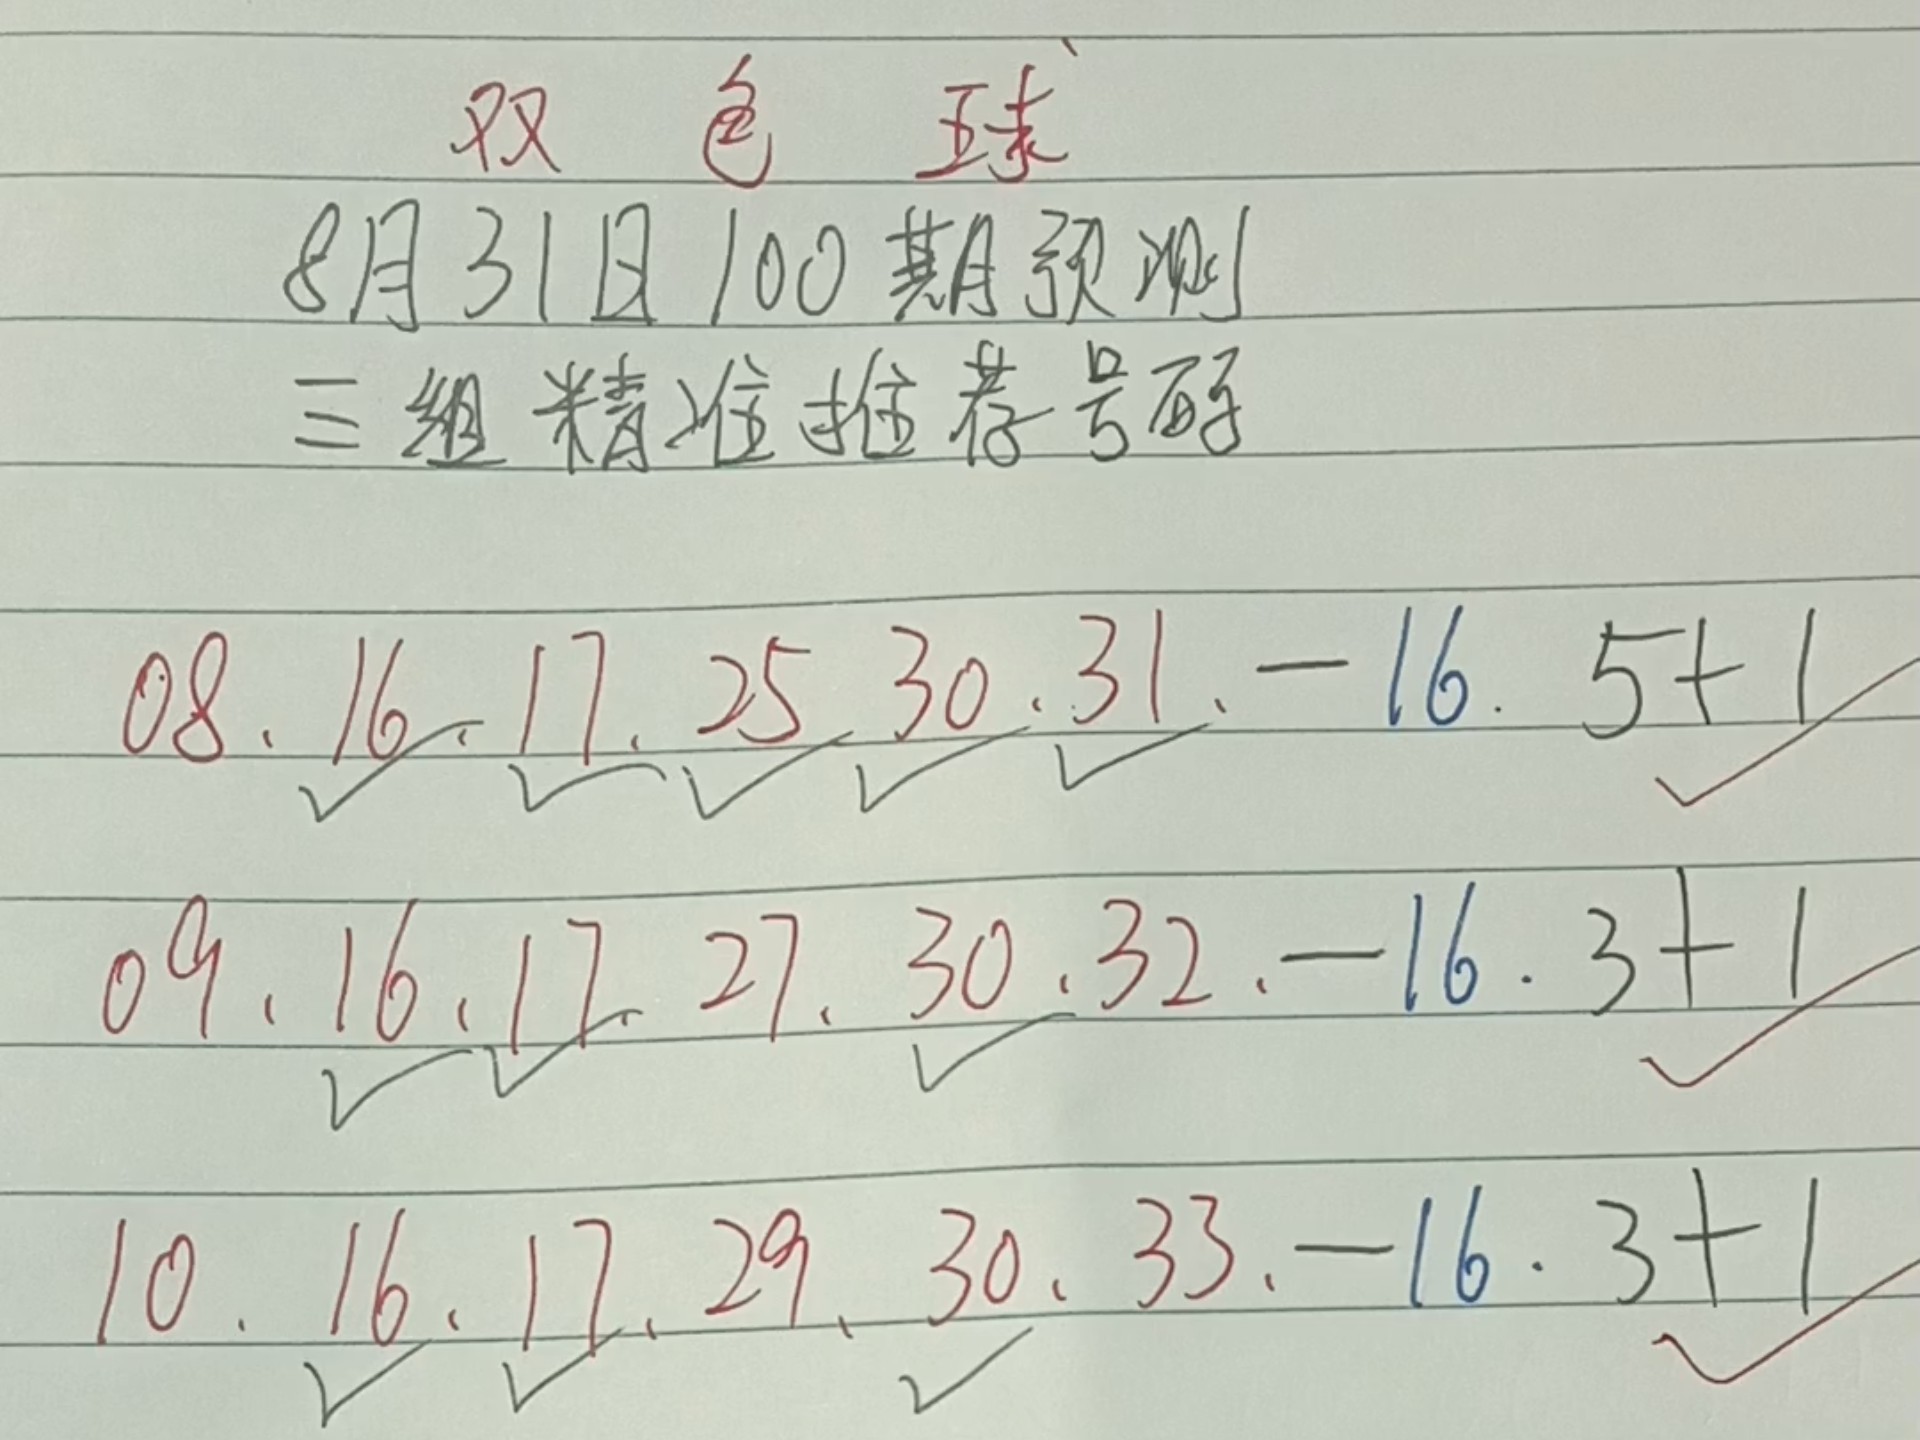 双色球
8月31日100期预测
三组精准推荐号码
08.16.17.25.30.31.—16.5+1
09.16.17.27.30.32.—16.3+1
10.16.17.29.30.33.—16.3+1